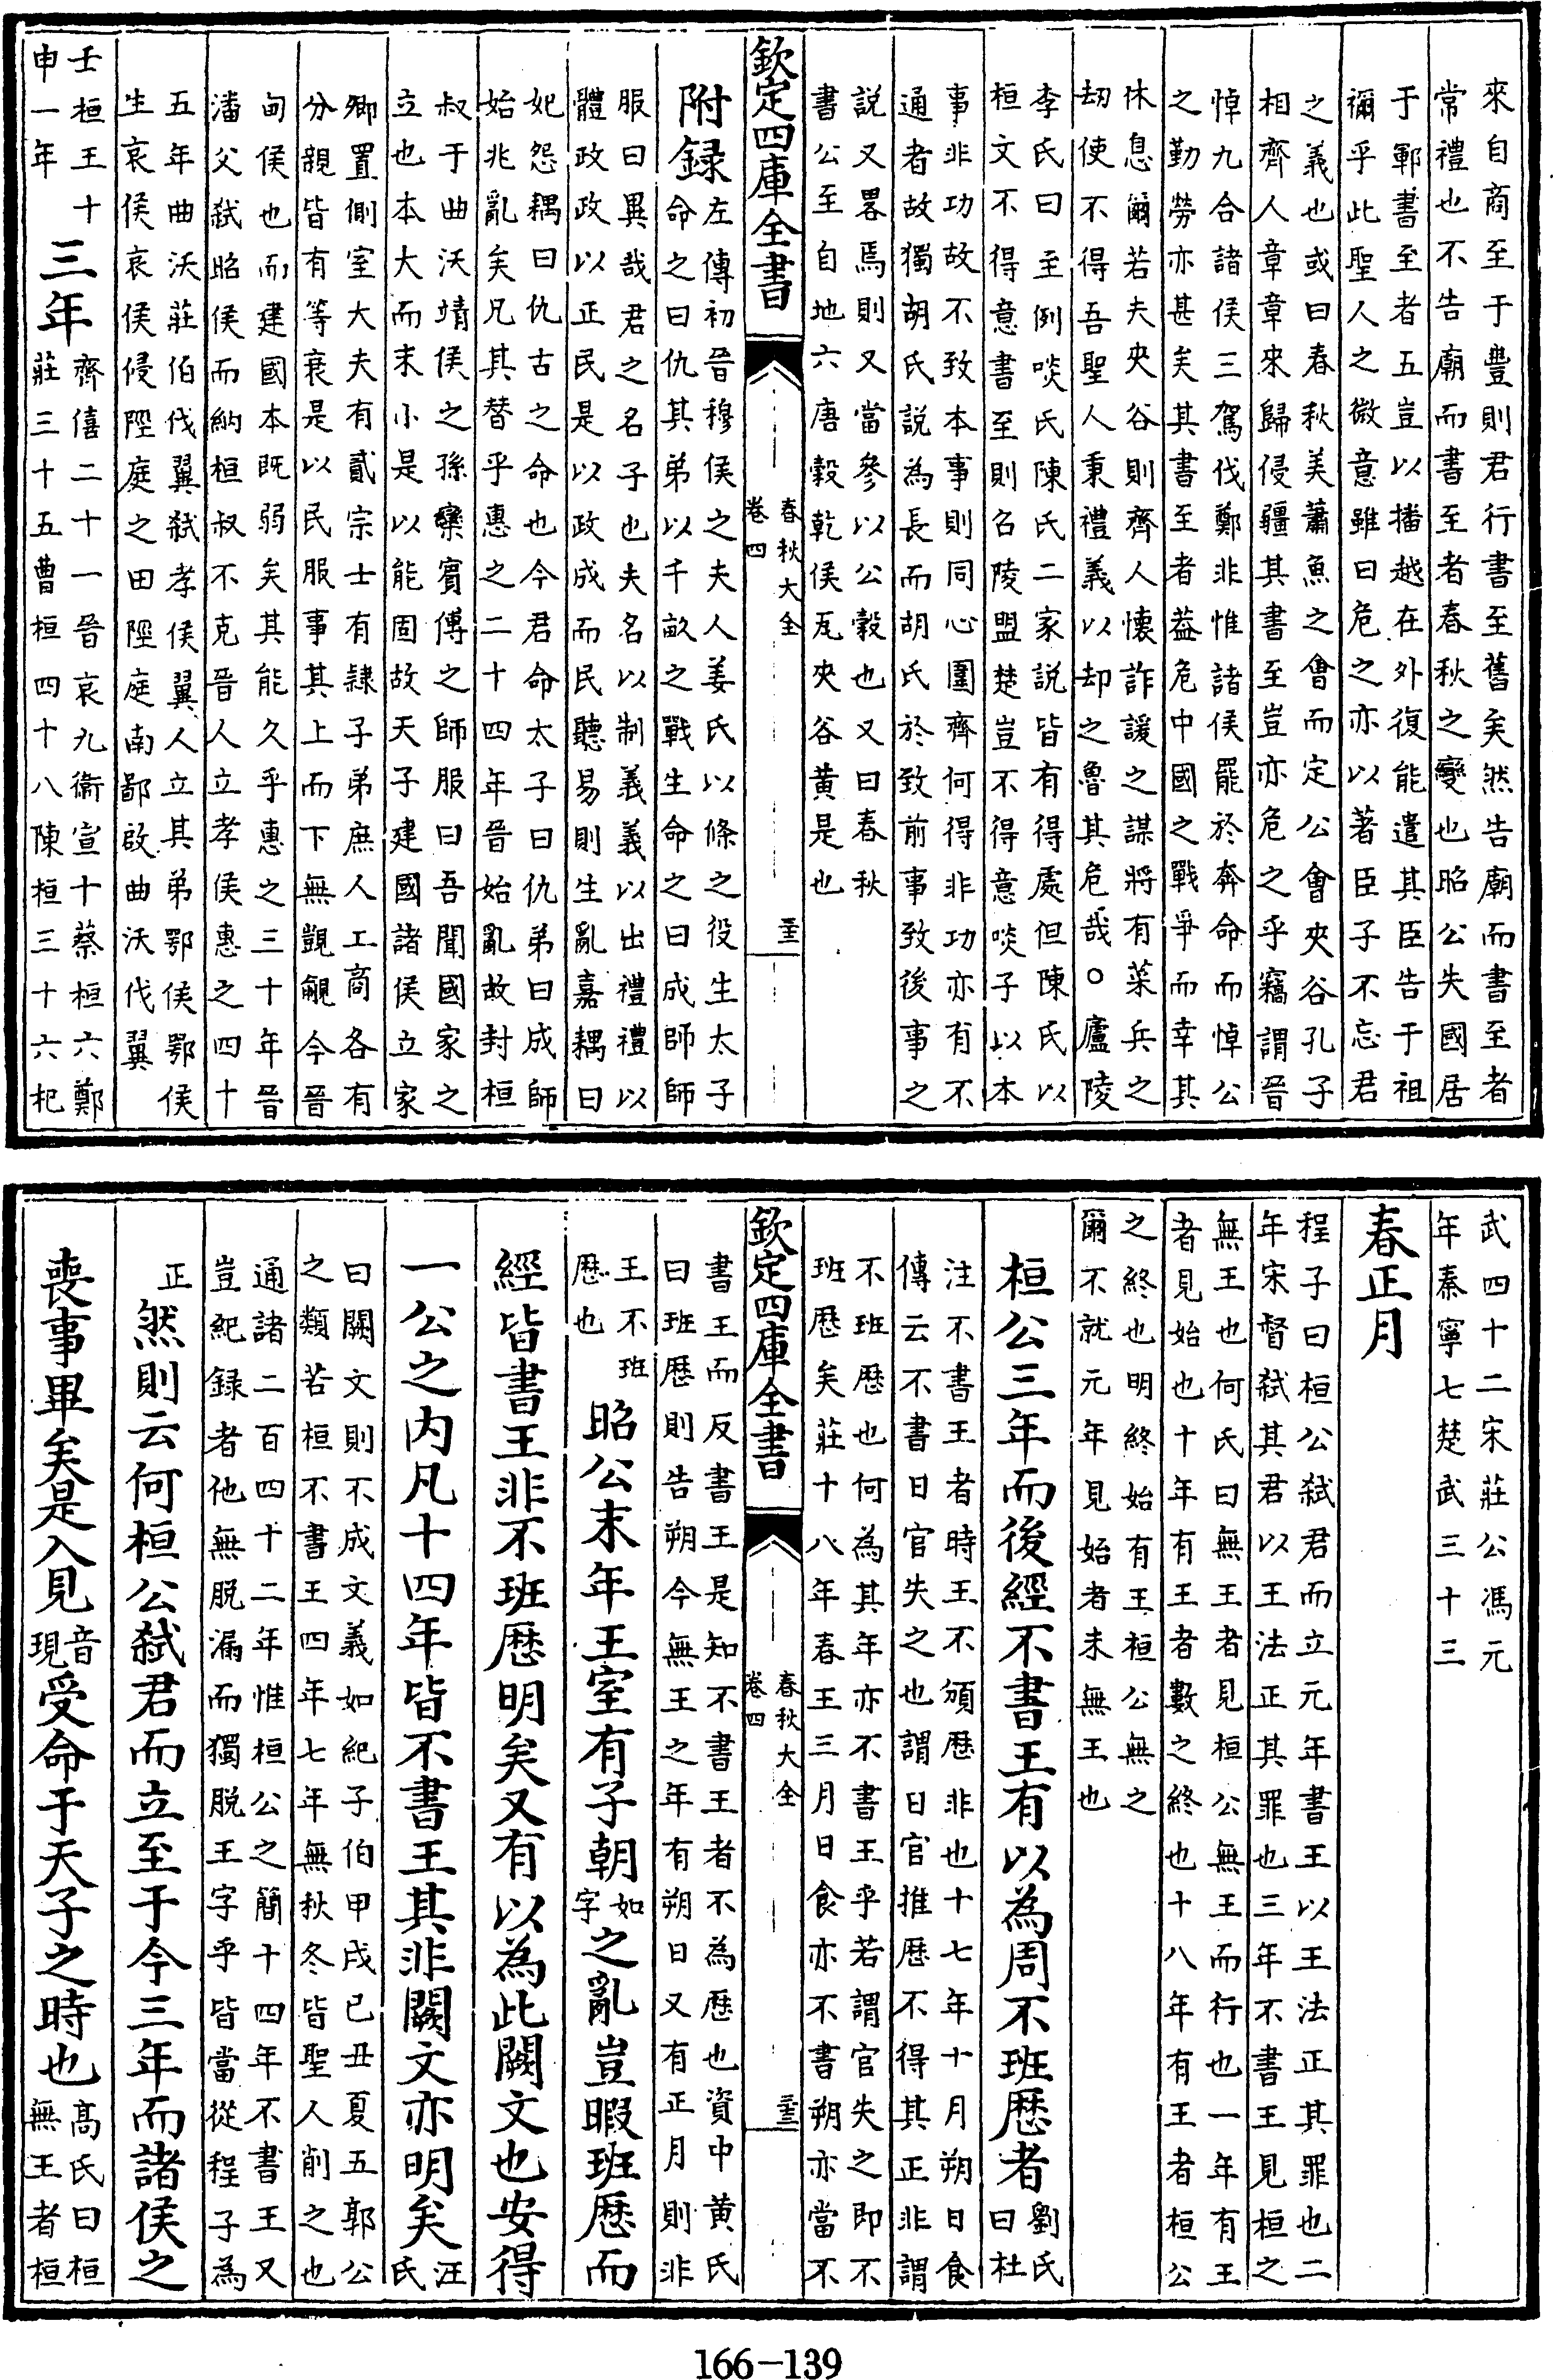 來自商至于豐則君行書至舊矣然告廟而書至者
常禮也不告廟而書至者春秋之變也昭公失國居
于鄆書至者五豈以播越在外復能遣其臣告于祖
禰乎此聖人之微意雖曰危之亦以著臣子不忘君
之義也或曰春秋美蕭魚之會而定公會夾谷孔子
相齊人章章來歸侵疆其書至豈亦危之乎竊謂晉
悼九合諸侯三駕伐鄭非惟諸侯罷於奔命而悼公
之勤勞亦甚矣其書至者葢危中國之戰爭而幸其
休息爾若夫夾谷則齊人懷詐諼之謀將有萊兵之
刼使不得吾聖人秉禮義以却之魯其危哉○廬陵
李氏曰至例啖氏陳氏二家説皆有得處但陳氏以
桓文不得意書至則召陵盟楚豈不得意啖子以本
事非功故不致本事則同心圍齊何得非功亦有不
通者故獨胡氏説為長而胡氏於致前事致後事之
説又畧焉則又當參以公穀也又曰春秋
書公至自地六唐穀乾侯瓦夾谷黄是也
欽定四庫全書
春秋大全
卷四
三
附録
左傳初晉穆侯之夫人姜氏以條之役生太子
命之曰仇其弟以千畝之戰生命之曰成師師
服曰異哉君之名子也夫名以制義義以出禮禮以
體政政以正民是以政成而民聽易則生亂嘉耦曰
妃怨耦曰仇古之命也今君命太子曰仇弟曰成師
始兆亂矣兄其替乎惠之二十四年晉始亂故封桓
叔于曲沃靖侯之孫欒賓傅之師服曰吾聞國家之
立也本大而末小是以能固故天子建國諸侯立家
卿置側室大夫有貳宗士有隸子弟庶人工商各有
分親皆有等衰是以民服事其上而下無覬覦今晉
甸侯也而建國本既弱矣其能久乎惠之三十年晉
潘父弑昭侯而納桓叔不克晉人立孝侯惠之四十
五年曲沃莊伯伐翼弑孝侯翼人立其弟鄂侯鄂侯
生哀侯哀侯侵陘庭之田陘庭南鄙啟曲沃伐翼
壬桓王十
申一年
三年
齊僖二十一晉哀九衞宣十蔡桓六鄭
莊三十五曹桓四十八陳桓三十六杞
武四十二宋莊公馮元
年秦寧七楚武三十三
春正月
程子曰桓公弑君而立元年書王以王法正其罪也二
年宋督弑其君以王法正其罪也三年不書王見桓之
無王也何氏曰無王者見桓公無王而行也一年有王
者見始也十年有王者數之終也十八年有王者桓公
之終也明終始有王桓公無之
爾不就元年見始者未無王也
桓公三年而後經不書王有以為周不班厯者
劉氏
曰杜
注不書王者時王不頒厯非也十七年十月朔日食
傳云不書日官失之也謂日官推厯不得其正非謂
不班厯也何為其年亦不書王乎若謂官失之即不
班厯矣莊十八年春王三月日食亦不書朔亦當不
欽定四庫全書
春秋大全
卷四
三
書王而反書王是知不書王者不為厯也資中黄氏
曰班厯則告朔今無王之年有朔日又有正月則非
王不班
厯也
昭公末年王室有子朝
如
字
之亂豈暇班厯而
經皆書王非不班厯明矣又有以為此闕文也安得
一公之内凡十四年皆不書王其非闕文亦明矣
汪
氏
曰闕文則不成文義如紀子伯甲戌己丑夏五郭公
之類若桓不書王四年七年無秋冬皆聖人削之也
通諸二百四十二年惟桓公之簡十四年不書王又
豈紀録者他無脱漏而獨脱王字乎皆當從程子為
正
然則云何桓公弑君而立至于今三年而諸侯之
喪事畢矣是入見
音
現
受命于天子之時也
髙氏曰桓
無王者桓
166-139